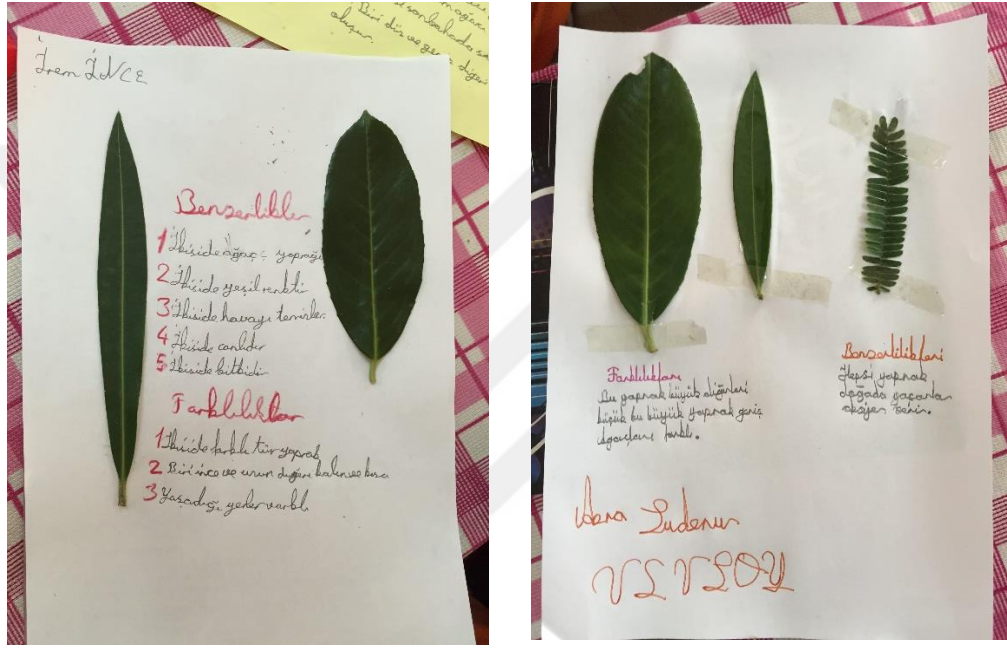 İrem İNCE
Biri düz ve geniş diğer
Benzerlikler
1 İkiside ağaç yaprağı
2 İkiside yeşil renkti
3 İkiside havayı temizler.
4 İkiside canlıdır
5 İkiside bitkidir
Farklılıklar
1 İkiside farklı tür yaprak
2 Biri ince ve uzun diğeri kalın ve kısa
3 Yaşadığı yerler varklı
Farklılıkları
Bu yaprak büyük diğerleri
küçük bu büyük yaprak geniş
ağaçları farklı.
Benzerlilikleri
Hepsi yaprak
doğada yaşarlar